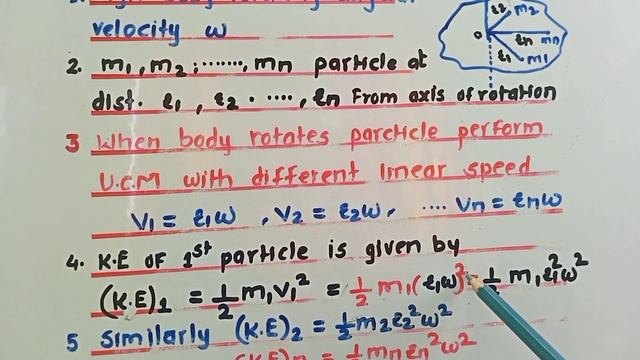 velocity ω
r2 m2
o rn mn
r1 m1
2. m1, m2, ......, mn particle at
dist. r1, r2 ....., rn From axis of rotation
3 When body rotates particle perform
U.C.M with different linear speed
V1 = r1ω , V2 = r2ω, .... Vn = rnω
4. K.E OF 1st particle is given by
(K.E)1 = 1/2 m1v1² = 1/2 m1(r1ω)² = 1/2 m1r1²ω²
5 Similarly (K.E)2 = 1/2 m2r2²ω²
(K.E)n = 1/2 mnrn²ω²